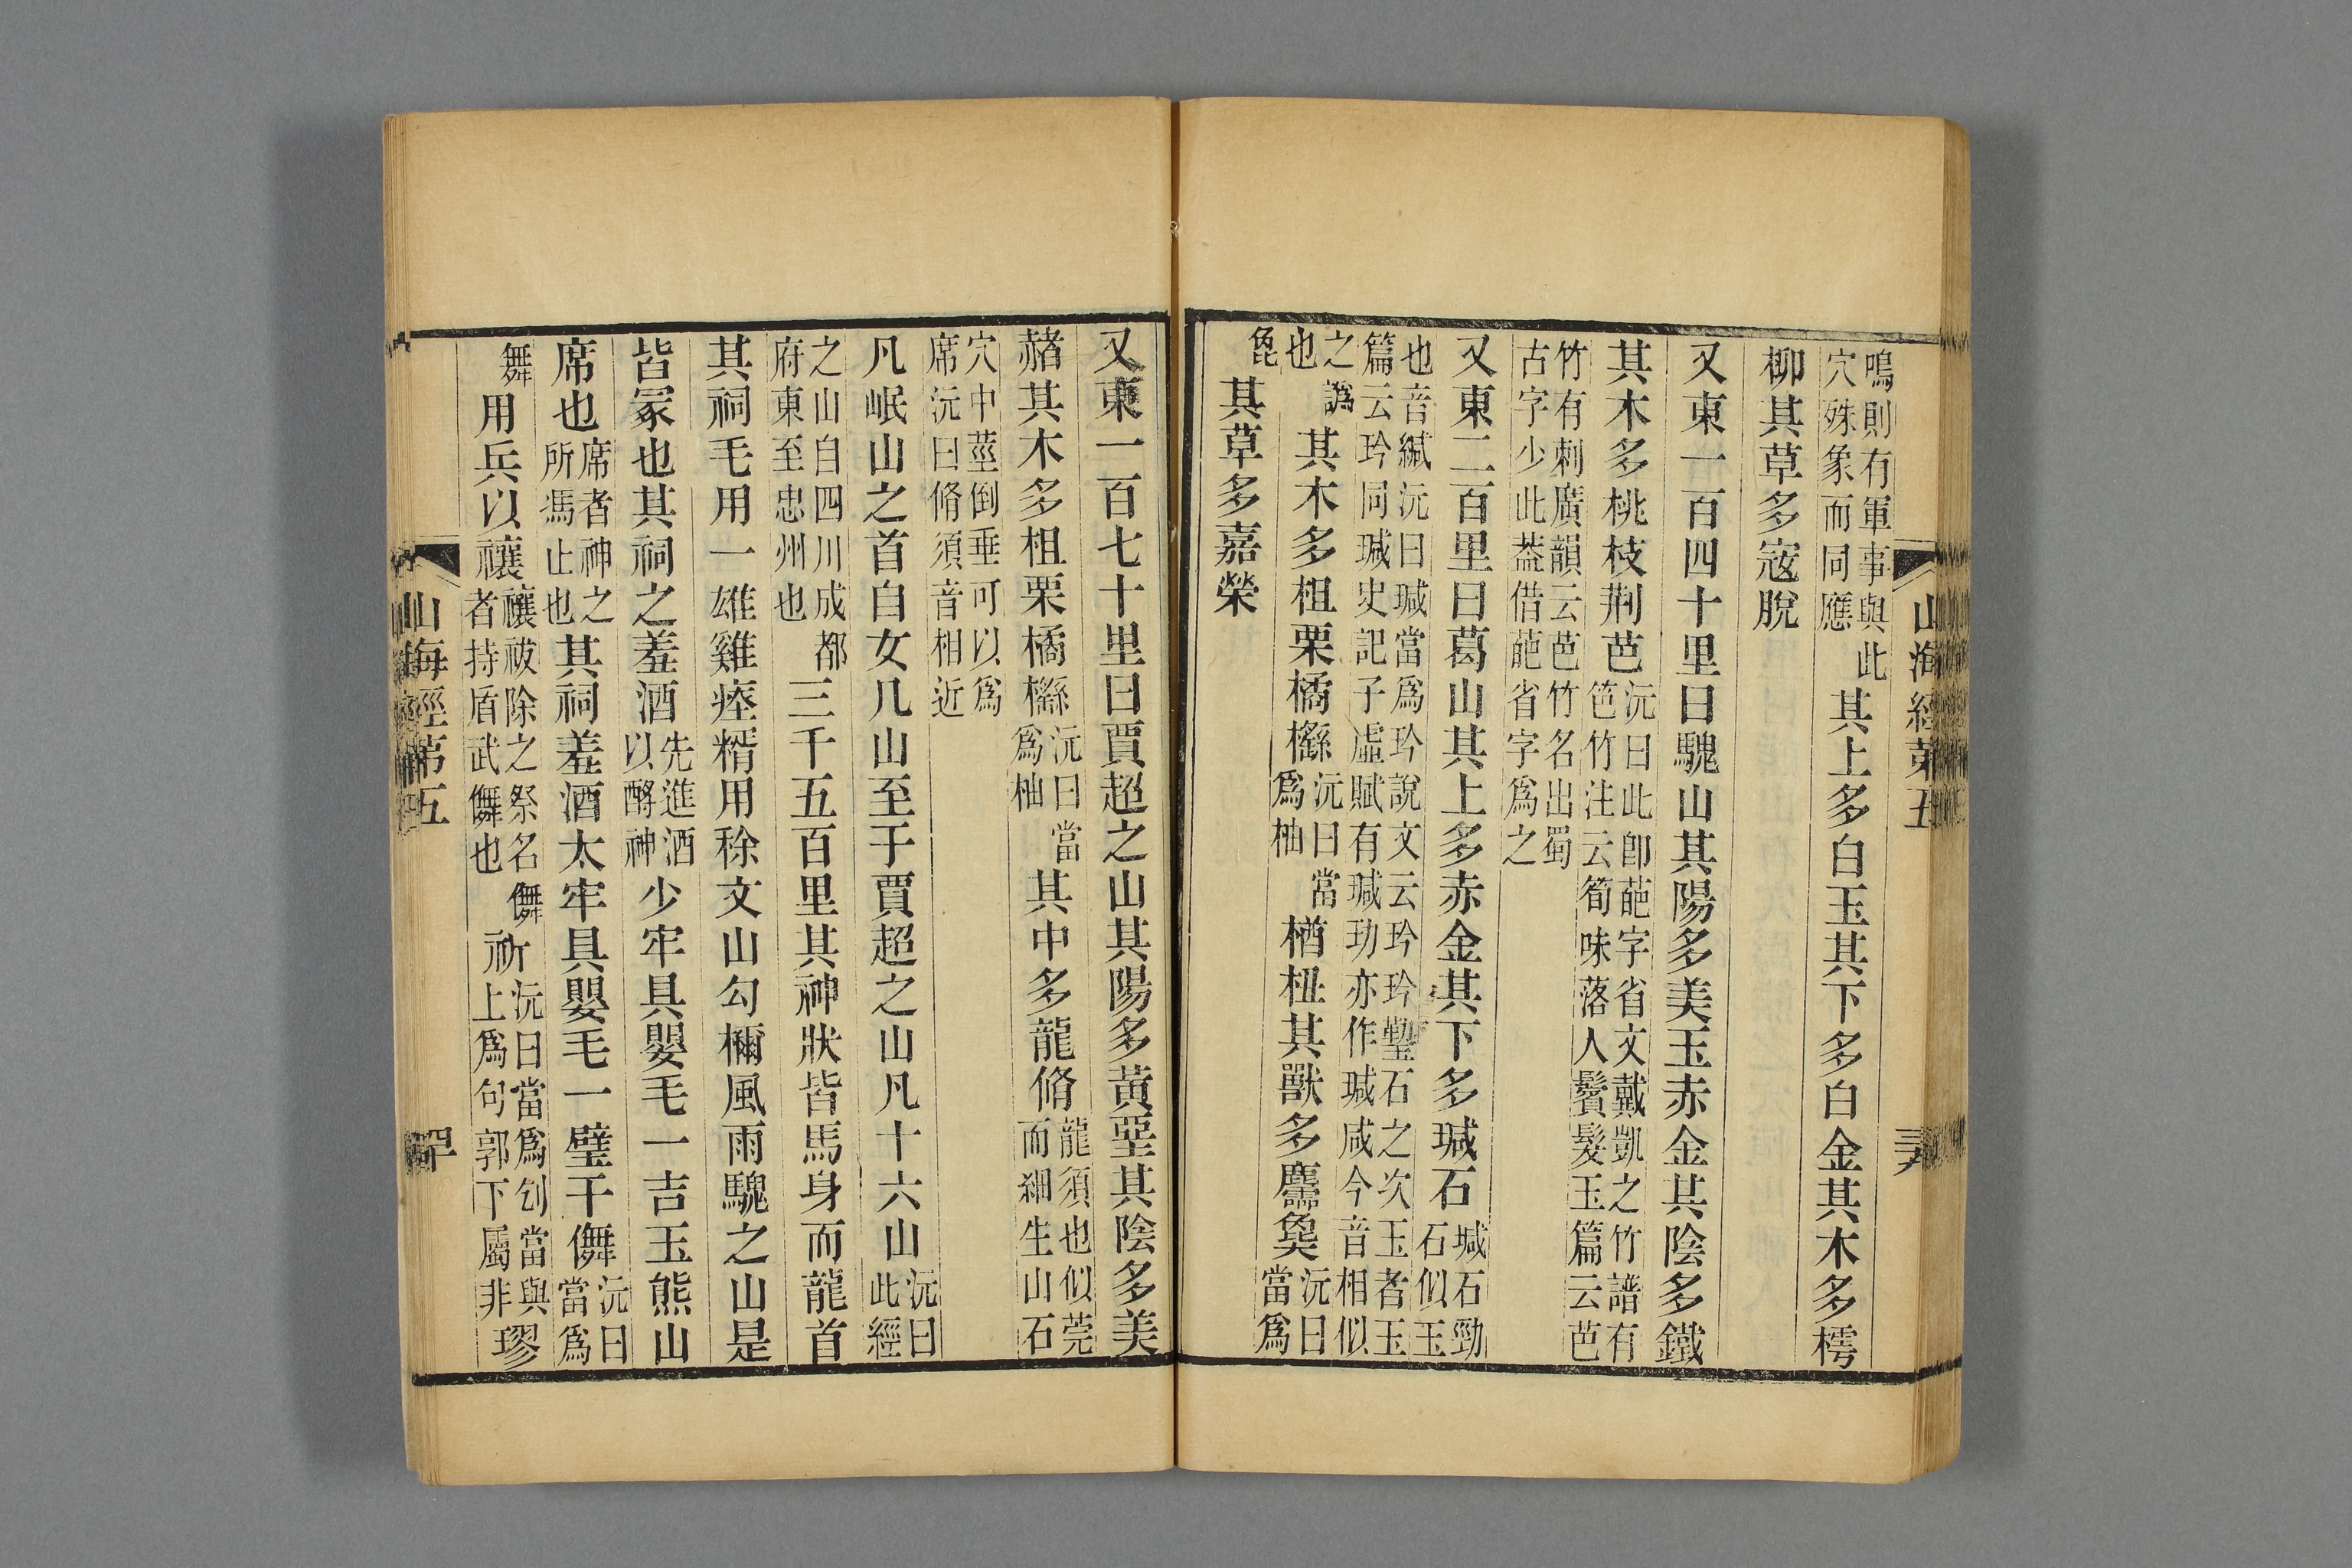 山海經第五
鳴則有軍事與此
穴殊象而同應
其上多白玉其下多白金其木多樗
柳其草多寇脫
又東一百四十里曰騩山其陽多美玉赤金其陰多鐵
其木多桃枝荆芭
沅曰此卽葩字省文戴凱之竹譜有
笆竹注云筍味落人鬢髮玉篇云芭
竹有刺廣韻云芭竹名出蜀
古字少此葢借葩省字爲之
又東二百里曰葛山其上多赤金其下多瑊石
瑊石勁
石似玉
也音緘沅曰瑊當爲玪說文云玪玪䃘石之次玉者玉
篇云玪同瑊史記子虛賦有瑊玏亦作瑊咸今音相似
之譌
也
其木多柤栗橘櫾
沅曰當
爲柚
楢杻其獸多麢㚟
沅曰
當爲
㲋
其草多嘉榮
又東一百七十里曰賈超之山其陽多黃堊其陰多美
赭其木多柤栗橘櫾
沅曰當
爲柚
其中多龍脩
龍須也似莞
而細生山石
穴中莖倒垂可以爲
席沅曰脩須音相近
凡岷山之首自女几山至于賈超之山凡十六山
沅曰
此經
之山自四川成都
府東至忠州也
三千五百里其神狀皆馬身而龍首
其祠毛用一雄雞瘞糈用稌文山勾檷風雨騩之山是
皆冢也其祠之羞酒
先進酒
以酹神
少牢具嬰毛一吉玉熊山
席也
席者神之
所馮止也
其祠羞酒太牢具嬰毛一璧干儛
沅曰
當爲
舞
用兵以禳
禳祓除之祭名儛
者持盾武儛也
祈
沅曰當爲刉當與
上爲句郭下屬非
璆
山海經第五